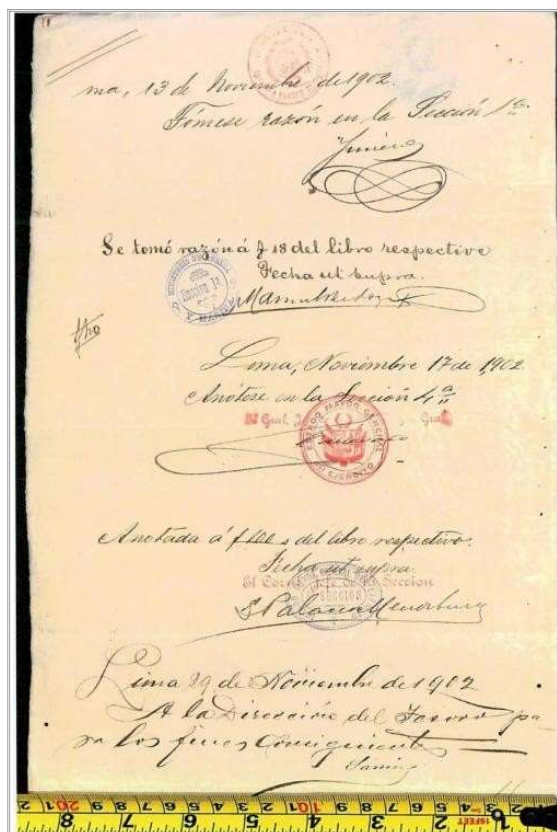 ma, 13 de Noviembre de 1902.
Tómese razón en la Sección 1ª
Se tomó razón á f 18 del libro respectivo
Fecha ut supra.
Sección 1ª
MARINA
Lima, Noviembre 17 de 1902
Anótese en la Sección 4ª
El Gral. J Gral
ESTADO MAYOR GENERAL
DEL EJERCITO
Anotada á f 100 s del libro respectivo.
Fecha ut supra.
El Coronel Jefe de la Seccion
Lima 29 de Noviembre de 1902
A la Dirección del Tesoro pa-
ra los fines consiguientes